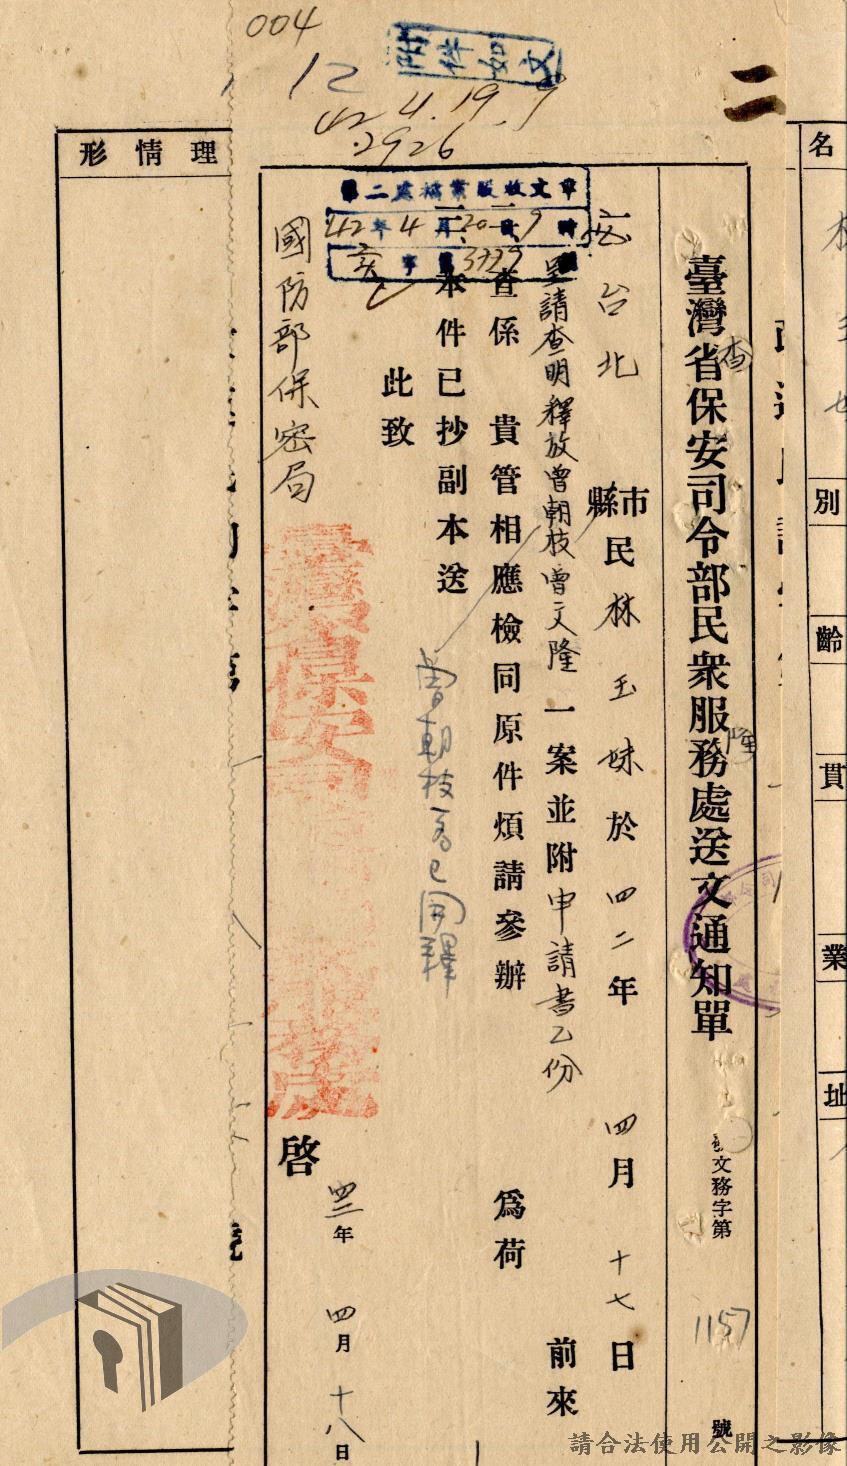 004
12
附件如文
42.4.19.9
2926
二
第二處檔案股收文章
42年4月20日9時
字第3729號
臺灣省保安司令部民衆服務處送文通知單
文務字第1157號
台北縣市民林玉妹於四二年四月十七日前來
呈請查明釋放曾朝枝曾文隆一案並附申請書乙份
一、查係貴管相應檢同原件煩請參辦爲荷
二、本件已抄副本送
曾朝枝一名已開釋
此致
國防部保密局
啓
四二年四月十八日
理情形
名
別
齡
貫
業
址
請合法使用公開之影像